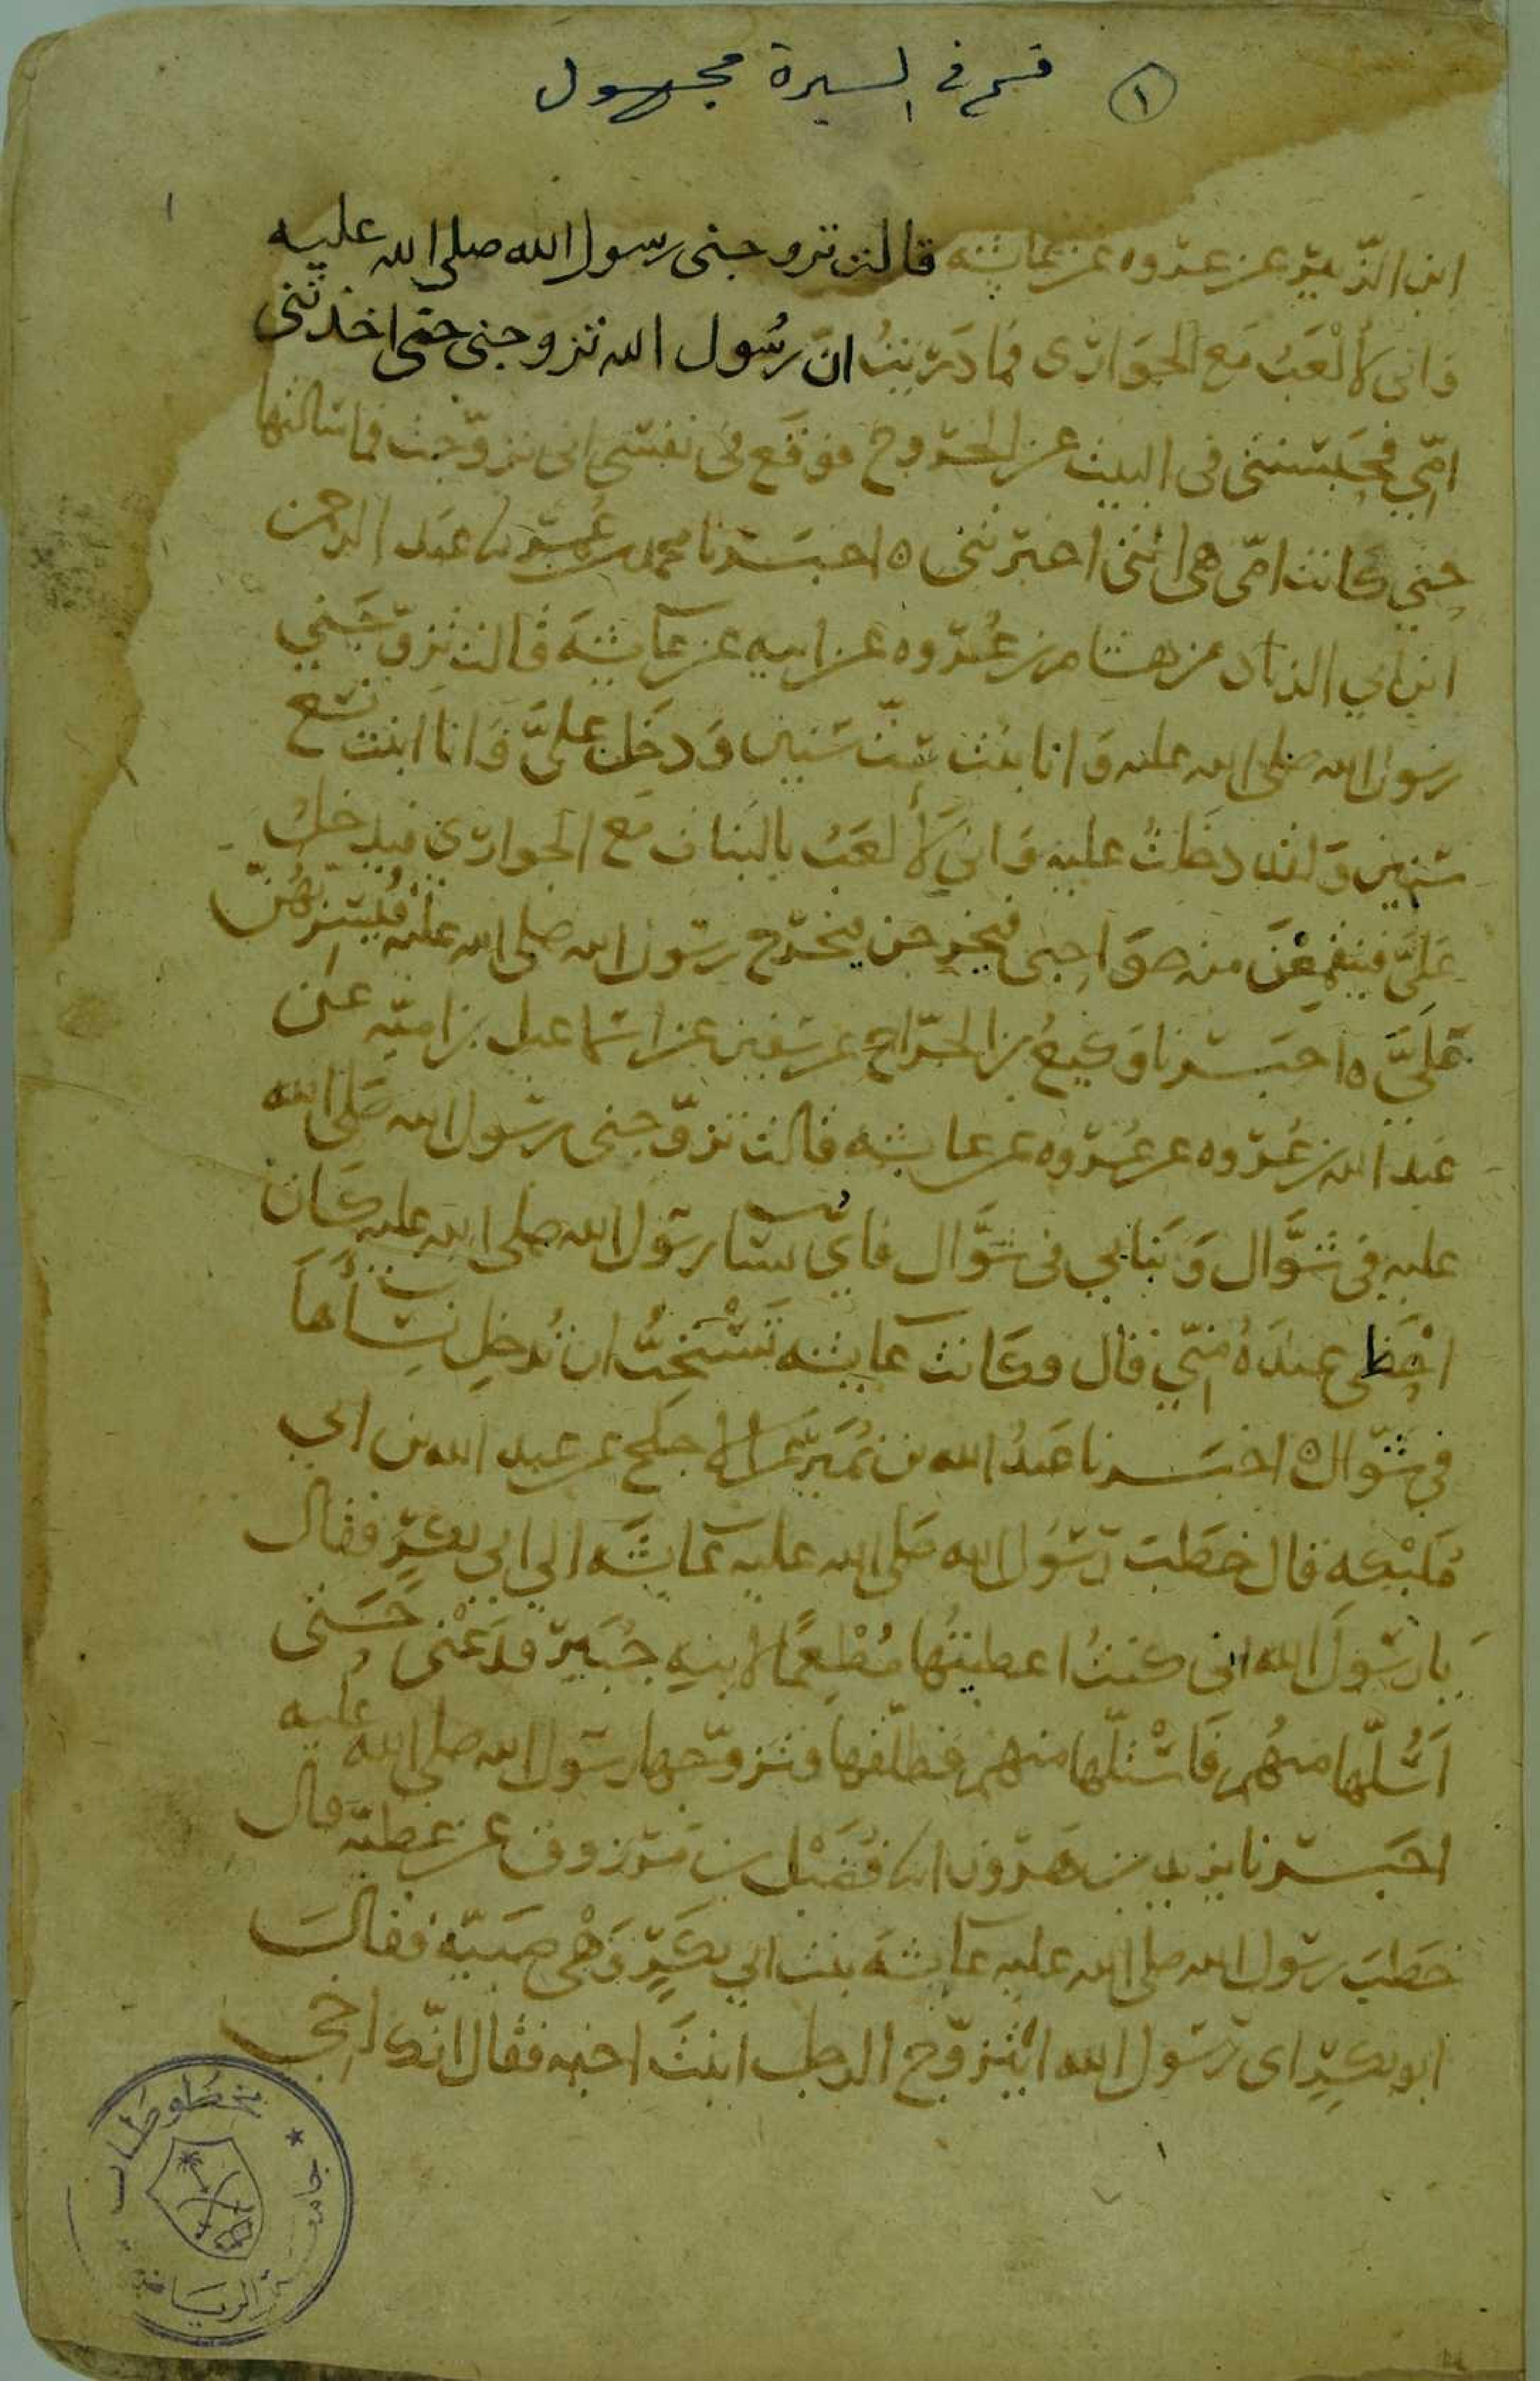 ١ قسم في السيرة مجهول
١
ابن الزبير عن عروه عن عايشه قالت تزوجني رسول الله صلى الله عليه
وانى لألعب مع الجوارى فما دريت ان رسول الله تزوجني حتى اخذتني
امي فحبستني في البيت عن الخروج فوقع في نفسي اني تزوجت فما سالتها
حتي كانت امي هي التي اخبرتني ٥ اخبرنا محمد بن عمر نا عبد الرحمن
ابن ابي الزناد عن هشام بن عروه عن ابيه عن عايشة قالت تزوجني
رسول الله صلى الله عليه وانا بنت ست سنين ودخل عليَّ وانا ابنت تسع
سنين ولقد دخلت عليه واني لألعب بالبنات مع الجواري فيدخل
عليَّ فينقمعن منه صواحبي فيخرجن فيخرج رسول الله صلى الله عليه فيسربهن
عليَّ ٥ اخبرنا وكيع بن الجراح عن سفين عن اسماعيل بن اميه عن
عبد الله بن عروه عن عروه عن عايشه قالت تزوجني رسول الله صلى الله
عليه في شوال وبنا بي في شوال فاي نسا رسول الله صلى الله عليه كان
احظى عنده مني قال وكانت عايشه تستحب ان تدخل نساها
في شوال ٥ اخبرنا عبد الله بن نمير عن الاجلح عن عبد الله بن ابي
مليكه قال خطب رسول الله صلى الله عليه عايشه الي ابي بكر فقال
يا رسول الله اني كنت اعطيتها مطعما لابنه جبير فدعني حتى
اسلها منهم فاستلها منهم فطلقها وتزوجها رسول الله صلى الله عليه
اخبرنا يزيد بن هرون انا فضيل بن مرزوق عن عطيه قال
خطب رسول الله صلى الله عليه عايشة بنت ابي بكر وهي صبيه فقال
ابو بكر اى رسول الله ايتزوج الرجل ابنت اخيه فقال انك اخي
مخطوطات
جامعة الرياض